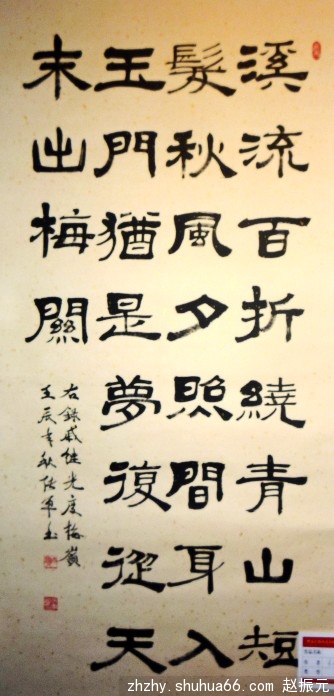 溪流百折繞青山短
髮秋風夕照間身入
玉門猶是夢復從天
末出梅關
右錄戚继光度梅嶺
壬辰年秋
zhzhy.shuhua66.com 赵振元